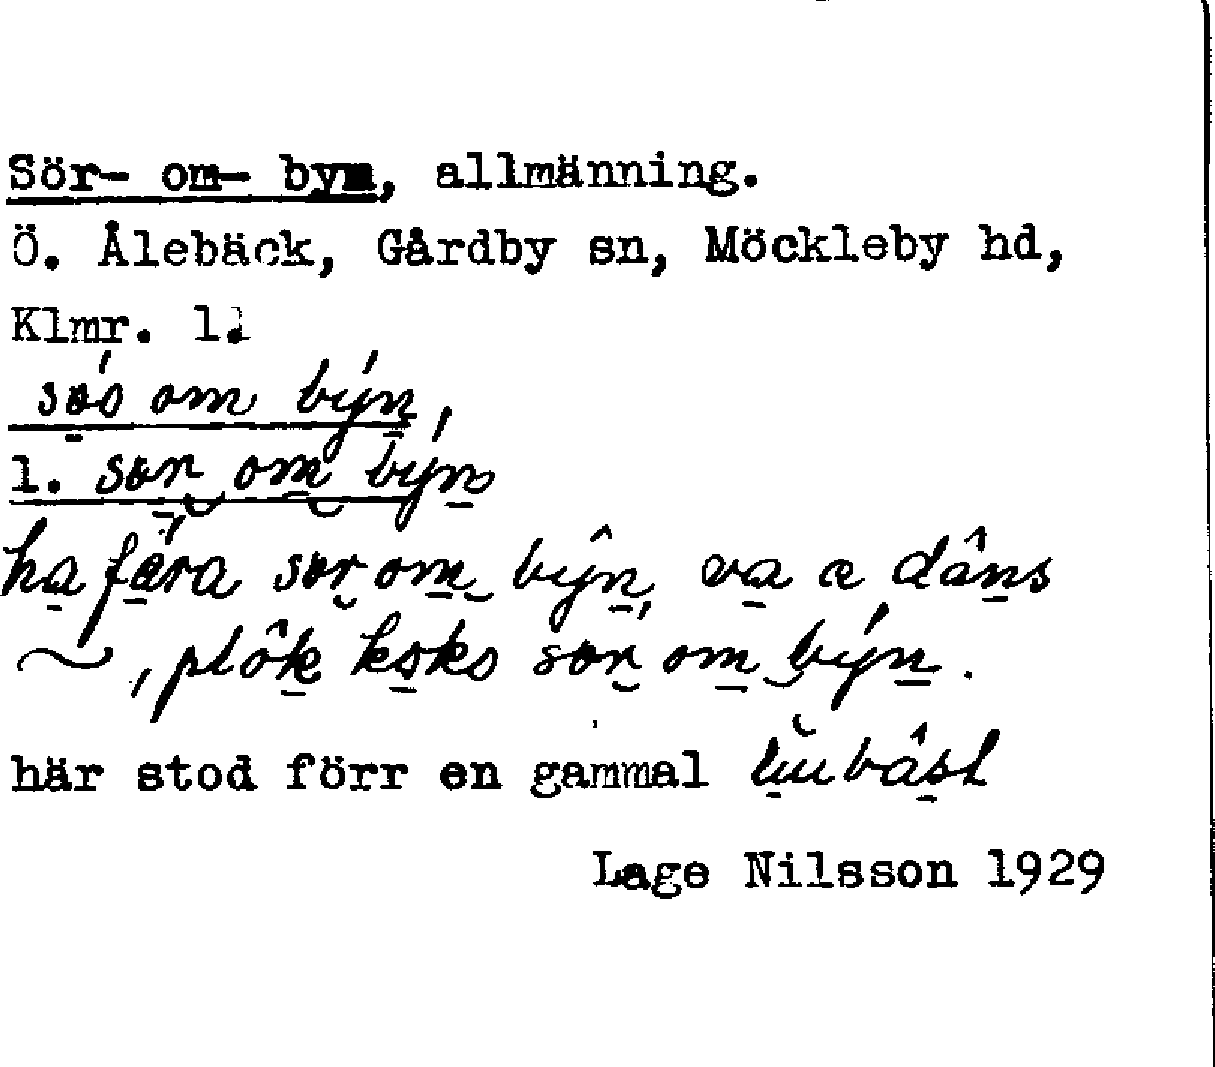 Sör- om- byn, allmänning.
Ö. Ålebäck, Gårdby sn, Möckleby hd,
Klmr. l.
om býn,
l. sør om býn
ha fǽra sør om bŷn, va æ dâns
~, plôk søn om býn.
här stod förr en gammal
Lage Nilsson 1929